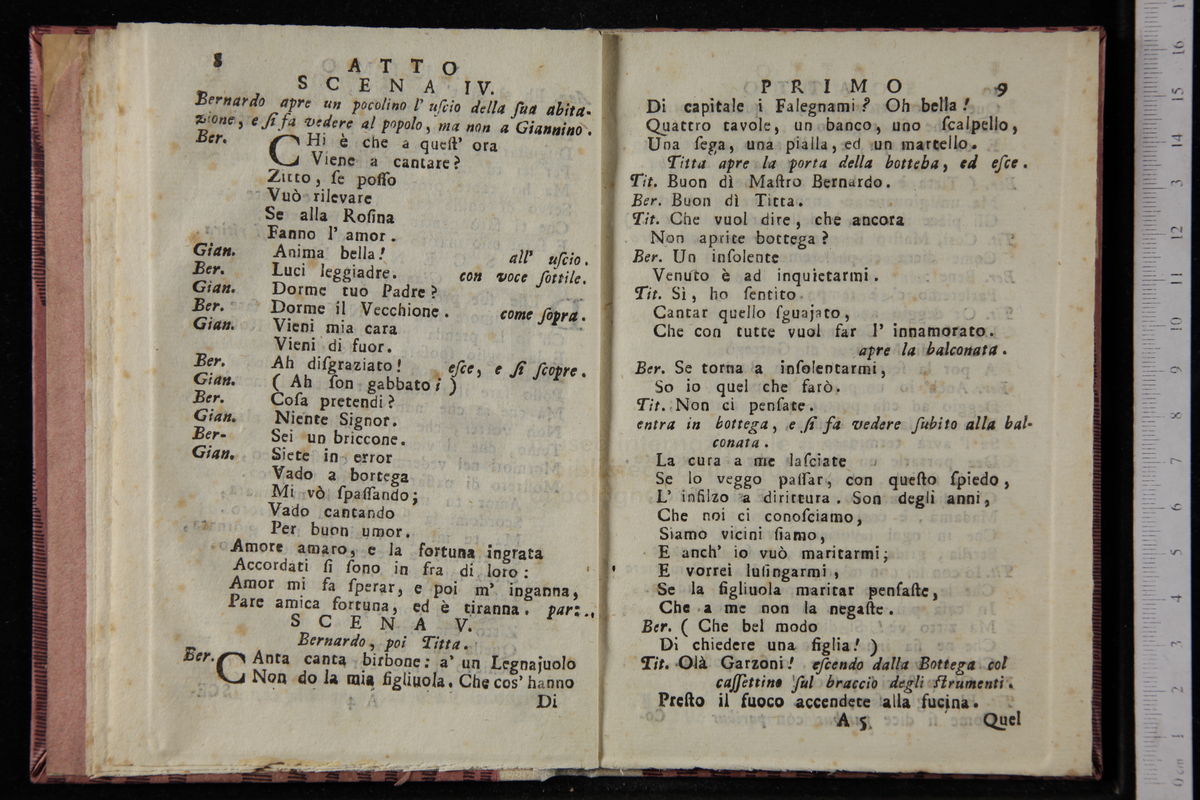 8
ATTO
SCENA IV.
Bernardo apre un pocolino l' uſcio della ſua abita-
zione, e ſi fa vedere al popolo, ma non a Giannino.
Ber. CHi è che a queſt' ora
Viene a cantare?
Zitto, ſe poſſo
Vuò rilevare
Se alla Roſina
Fanno l' amor.
Gian. Anima bella! all' uſcio.
Ber. Luci leggiadre. con voce ſottile.
Gian. Dorme tuo Padre?
Ber. Dorme il Vecchione. come ſopra.
Gian. Vieni mia cara
Vieni di fuor.
Ber. Ah diſgraziato! eſce, e ſi ſcopre.
Gian. (Ah ſon gabbato!)
Ber. Coſa pretendi?
Gian. Niente Signor.
Ber- Sei un briccone.
Gian. Siete in error
Vado a bortega
Mi vò ſpaſſando;
Vado cantando
Per buon umor.
Amore amaro, e la fortuna ingrata
Accordati ſi ſono in fra di loro:
Amor mi fa ſperar, e poi m' inganna,
Pare amica fortuna, ed è tiranna. par:
SCENA V.
Bernardo, poi Titta.
Ber. CAnta canta birbone: a' un Legnajuolo
Non do la mia figliuola. Che cos' hanno
Di
PRIMO
9
Di capitale i Falegnami? Oh bella!
Quattro tavole, un banco, uno ſcalpello,
Una ſega, una pialla, ed un martello.
Titta apre la porta della botteba, ed eſce.
Tit. Buon dì Maſtro Bernardo.
Ber. Buon dì Titta.
Tit. Che vuol dire, che ancora
Non aprite bottega?
Ber. Un inſolente
Venuto è ad inquietarmi.
Tit. Sì, ho ſentito
Cantar quello ſguajato,
Che con tutte vuol far l' innamorato.
apre la balconata.
Ber. Se torna a inſolentarmi,
So io quel che farò.
Tit. Non ci penſate.
entra in bottega, e ſi fa vedere ſubito alla bal-
conata.
La cura a me laſciate
Se lo veggo paſſar, con queſto ſpiedo,
L' infilzo a dirittura. Son degli anni,
Che noi ci conoſciamo,
Siamo vicini ſiamo,
E anch' io vuò maritarmi;
E vorrei luſingarmi,
Se la figliuola maritar penſaſte,
Che a me non la negaſte.
Ber. (Che bel modo
Di chiedere una figlia!)
Tit. Olà Garzoni! eſcendo dalla Bottega col
caſſettino ſul braccio degli ſtrumenti.
Preſto il fuoco accendete alla fucina.
A 5
Quel